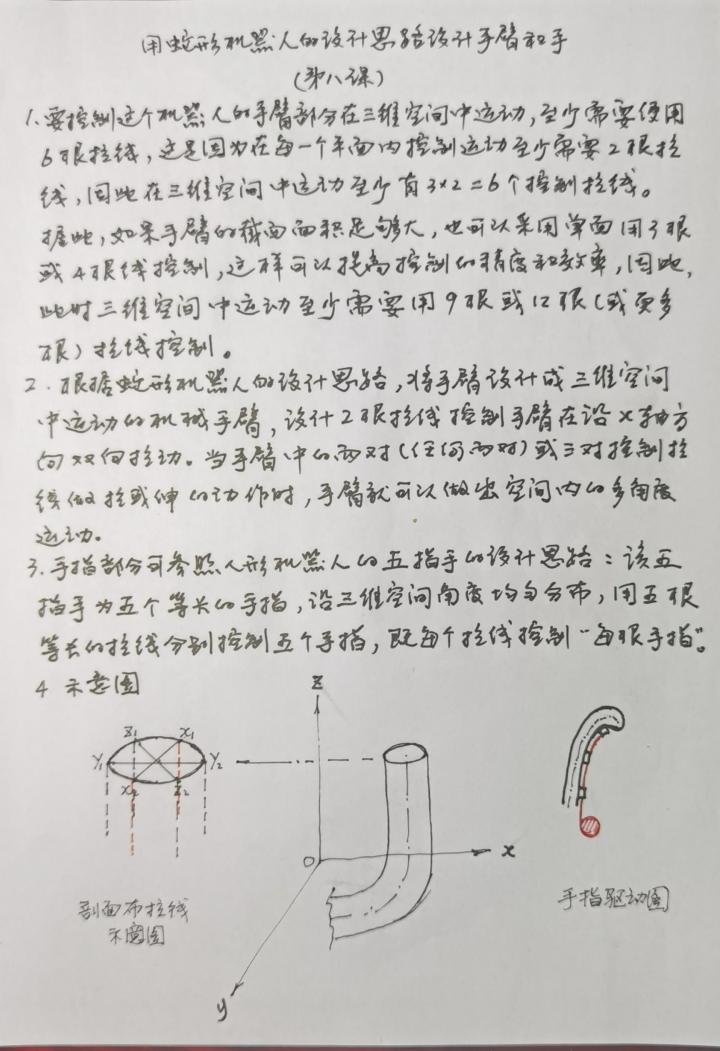 用蛇形机器人的设计思路设计手臂和手
(第八课)
1.要控制这个机器人的手臂部分在三维空间中运动,至少需要使用
6根拉线,这是因为在每一个平面内控制运动至少需要2根拉
线,因此在三维空间中运动至少有3×2=6个控制拉线。
据此,如果手臂的截面面积足够大,也可以采用单面用3根
或4根线控制,这样可以提高控制的精度和效率,因此,
此时三维空间中运动至少需要用9根或12根(或更多
根)拉线控制。
2.根据蛇形机器人的设计思路,将手臂设计成三维空间
中运动的机械手臂,设计2根拉线控制手臂在沿X轴方
向双向拉动。当手臂中的两对(任何两对)或三对控制拉
线做拉或伸的动作时,手臂就可以做出空间内的多角度
运动。
3.手指部分可参照人形机器人的五指手的设计思路:该五
指手为五个等长的手指,沿三维空间角度均匀分布,用五根
等长的拉线分别控制五个手指,既每个拉线控制“每根手指”。
4 示意图
Z
Z1 X1
Y1 Y2
X2 Z2
O X
y
剖面布拉线
示意图
手指驱动图